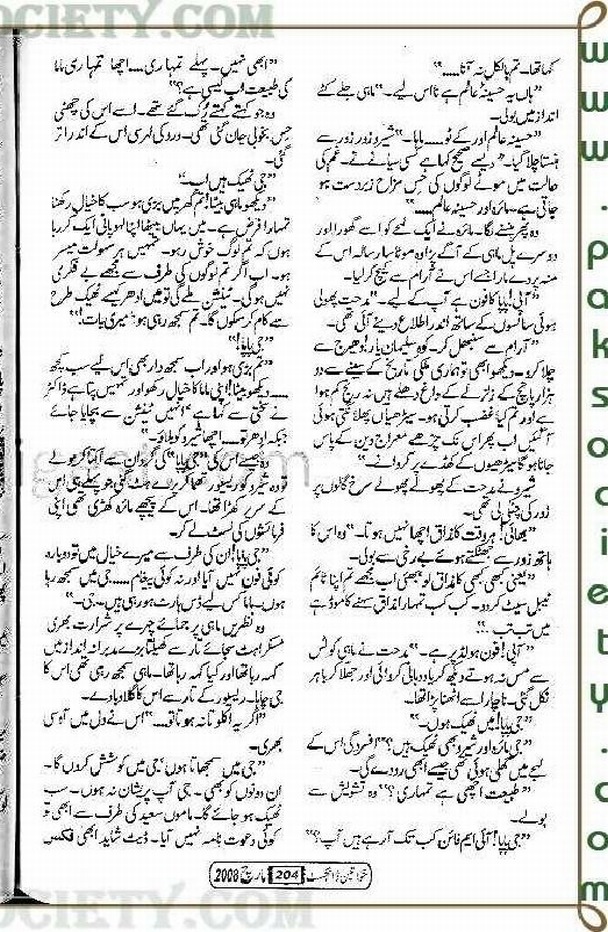 کہا تھا۔ تم بالکل نہ آنا.....“
”ہاں یہ حسینۂ عالم ہے نا اس لیے۔“ ماہی جلے کٹے
انداز میں بولی۔
”حسینۂ عالم اور کے ٹو..... ہاہا۔“ شیرو زور زور سے
ہنستا چلا گیا۔ ”ویسے صحیح کہا ہے کسی سیانے نے۔ غم کی
حالت میں موٹے لوگوں کی حس مزاح زبردست ہو
جاتی ہے۔ مائرہ اور حسینۂ عالم.....“
وہ پھر ہنسنے لگا۔ مائرہ نے ایک لمحے کو اسے گھورا اور
دوسرے پل ماہی کے آگے پڑا وہ موٹا سا رسالہ اس کے
منہ پر دے مارا جسے اس نے آرام سے کیچ کر لیا۔
”آپی! پاپا کا فون ہے آپ کے لیے۔“ مدحت پھولی
ہوئی سانسوں کے ساتھ اندر اطلاع دینے آئی تھی۔
”آرام سے سنبھل کر۔ کوہ سلیمان یار! دھیرج سے
چلا کرو۔ دیکھو ابھی تو ہماری ملکی تاریخ کے سینے سے دو
ہزار پانچ کے زلزلے کے داغ دھلے ہیں نہ رنج کم ہوا
ہے اور تم کیا غضب کرتی ہو۔ سیڑھیاں پھلانگتی ہوئی
آ گئیں اب پھر اس تک چڑھے معراج دین کے پاس
جانا ہو گا سیڑھیوں کے کھڈے پر کروانے۔“
شیرو نے مدحت کے پھولے پھولے سرخ گالوں پر
زور کی چٹکی لی تھی۔
”بھائی! ہر وقت کا مذاق اچھا نہیں ہوتا۔“ وہ اس کا
ہاتھ زور سے جھٹکتے ہوئے بے رخی سے بولی۔
”یعنی کبھی کبھی کا مذاق لو بھئی اب مجھے تم اپنا ٹائم
ٹیبل سیٹ کر دو۔ کب کب تمہارا مذاق سہنے کا موڈ ہے
میں تب تب ..“
”آپی! فون ہولڈ پر ہے۔“ مدحت نے ماہی کو ٹس
سے مس نہ ہوتے دیکھ کر یاد دہانی کروائی اور جھلا کر باہر
نکل گئی۔ ناچار اسے اٹھنا پڑا تھا۔
”جی پاپا! میں ٹھیک ہوں۔“
”جی مائرہ اور شیرو بھی ٹھیک ہیں؟“ افسردگی اس کے
لہجے میں گھلی ہوئی تھی جیسے ابھی رو دے گی۔
”طبیعت اچھی ہے تمہاری؟“ وہ تشویش سے
بولے۔
”جی پاپا! آئی ایم فائن کب تک آ رہے ہیں آپ؟“
”ابھی نہیں۔ پہلے تمہاری.... اچھا تمہاری ماما
کی طبیعت اب کیسی ہے؟“
وہ جو کہتے کہتے رک گئے تھے۔ اسے اس کی چھٹی
حس بخوبی جان گئی تھی۔ درد کی لہر سی اس کے اندر اتر
گئی۔
”جی ٹھیک ہیں اب۔“
”دیکھو ماہی بیٹا! تم گھر میں بڑی ہو سب کا خیال رکھنا
تمہارا فرض ہے۔ میں یہاں بیٹھا اپنا لہو پانی ایک کر رہا
ہوں کہ تم لوگ خوش رہو۔ تمہیں ہر سہولت میسر
ہو۔ اب اگر تم لوگوں کی طرف سے مجھے بے فکری
نہیں ہو گی۔ ٹینشن ملے گی تو میں ادھر کیسے ٹھیک طرح
سے کام کر سکوں گا۔ تم سمجھ رہی ہو؟ میری بات!“
”جی پاپا!“
”تم بڑی ہو اور اب سمجھ دار بھی اس لیے سب کچھ
.... دیکھو بیٹا! اپنی ماما کا خیال رکھو اور تمہیں پتا ہے ڈاکٹر
نے سختی سے کہا ہے ’انہیں ٹینشن سے بچایا جائے
جبکہ ادھر تو.... اچھا شیرو کو بلاؤ۔“
وہ جیسے اس کی ”جی پاپا“ کی گردان سے اکتا کر بولے
تو وہ شیرو کو ریسیور تھما کر پرے ہٹ گئی جو پہلے ہی اس
کے سر پر کھڑا تھا۔ اس کے پیچھے مائرہ کھڑی تھی اپنی
فرمائشوں کی لسٹ لے کر۔
”جی پاپا! ان کی طرف سے میرے خیال میں تو دوبارہ
کوئی فون نہیں آیا اور نہ کوئی پیغام..... جی میں سمجھ رہا
ہوں۔ ماما کس لیے ڈس ہارٹ ہو رہی ہیں۔ جی۔“
وہ نظریں ماہی پر جمائے چہرے پر شرارت بھری
مسکراہٹ سجائے تار سے کھیلتا بڑے مدبرانہ انداز میں
کہہ رہا تھا اور کیا کہہ رہا تھا۔ ماہی سمجھ رہی تھی اس کا
جی چاہا۔ ریسیور کے تار سے اس کا گلا دبا دے۔
”اگر یہ اکلوتا نہ ہوتا تو....“ اس نے دل میں آہ سی
بھری۔
”جی میں سمجھاتا ہوں‘ جی میں کوشش کروں گا۔
ان دونوں کو بھی۔ جی آپ پریشان نہ ہوں۔ سب
ٹھیک ہو جائے گا۔ ماموں سعید کی طرف سے ابھی تو
کوئی دعوت نامہ نہیں آیا۔ ڈیٹ شاید ابھی فکس
خواتین ڈائجسٹ 204 مارچ 2008
www.paksociety.com
SOCIETY.COM
OCIETY.COM